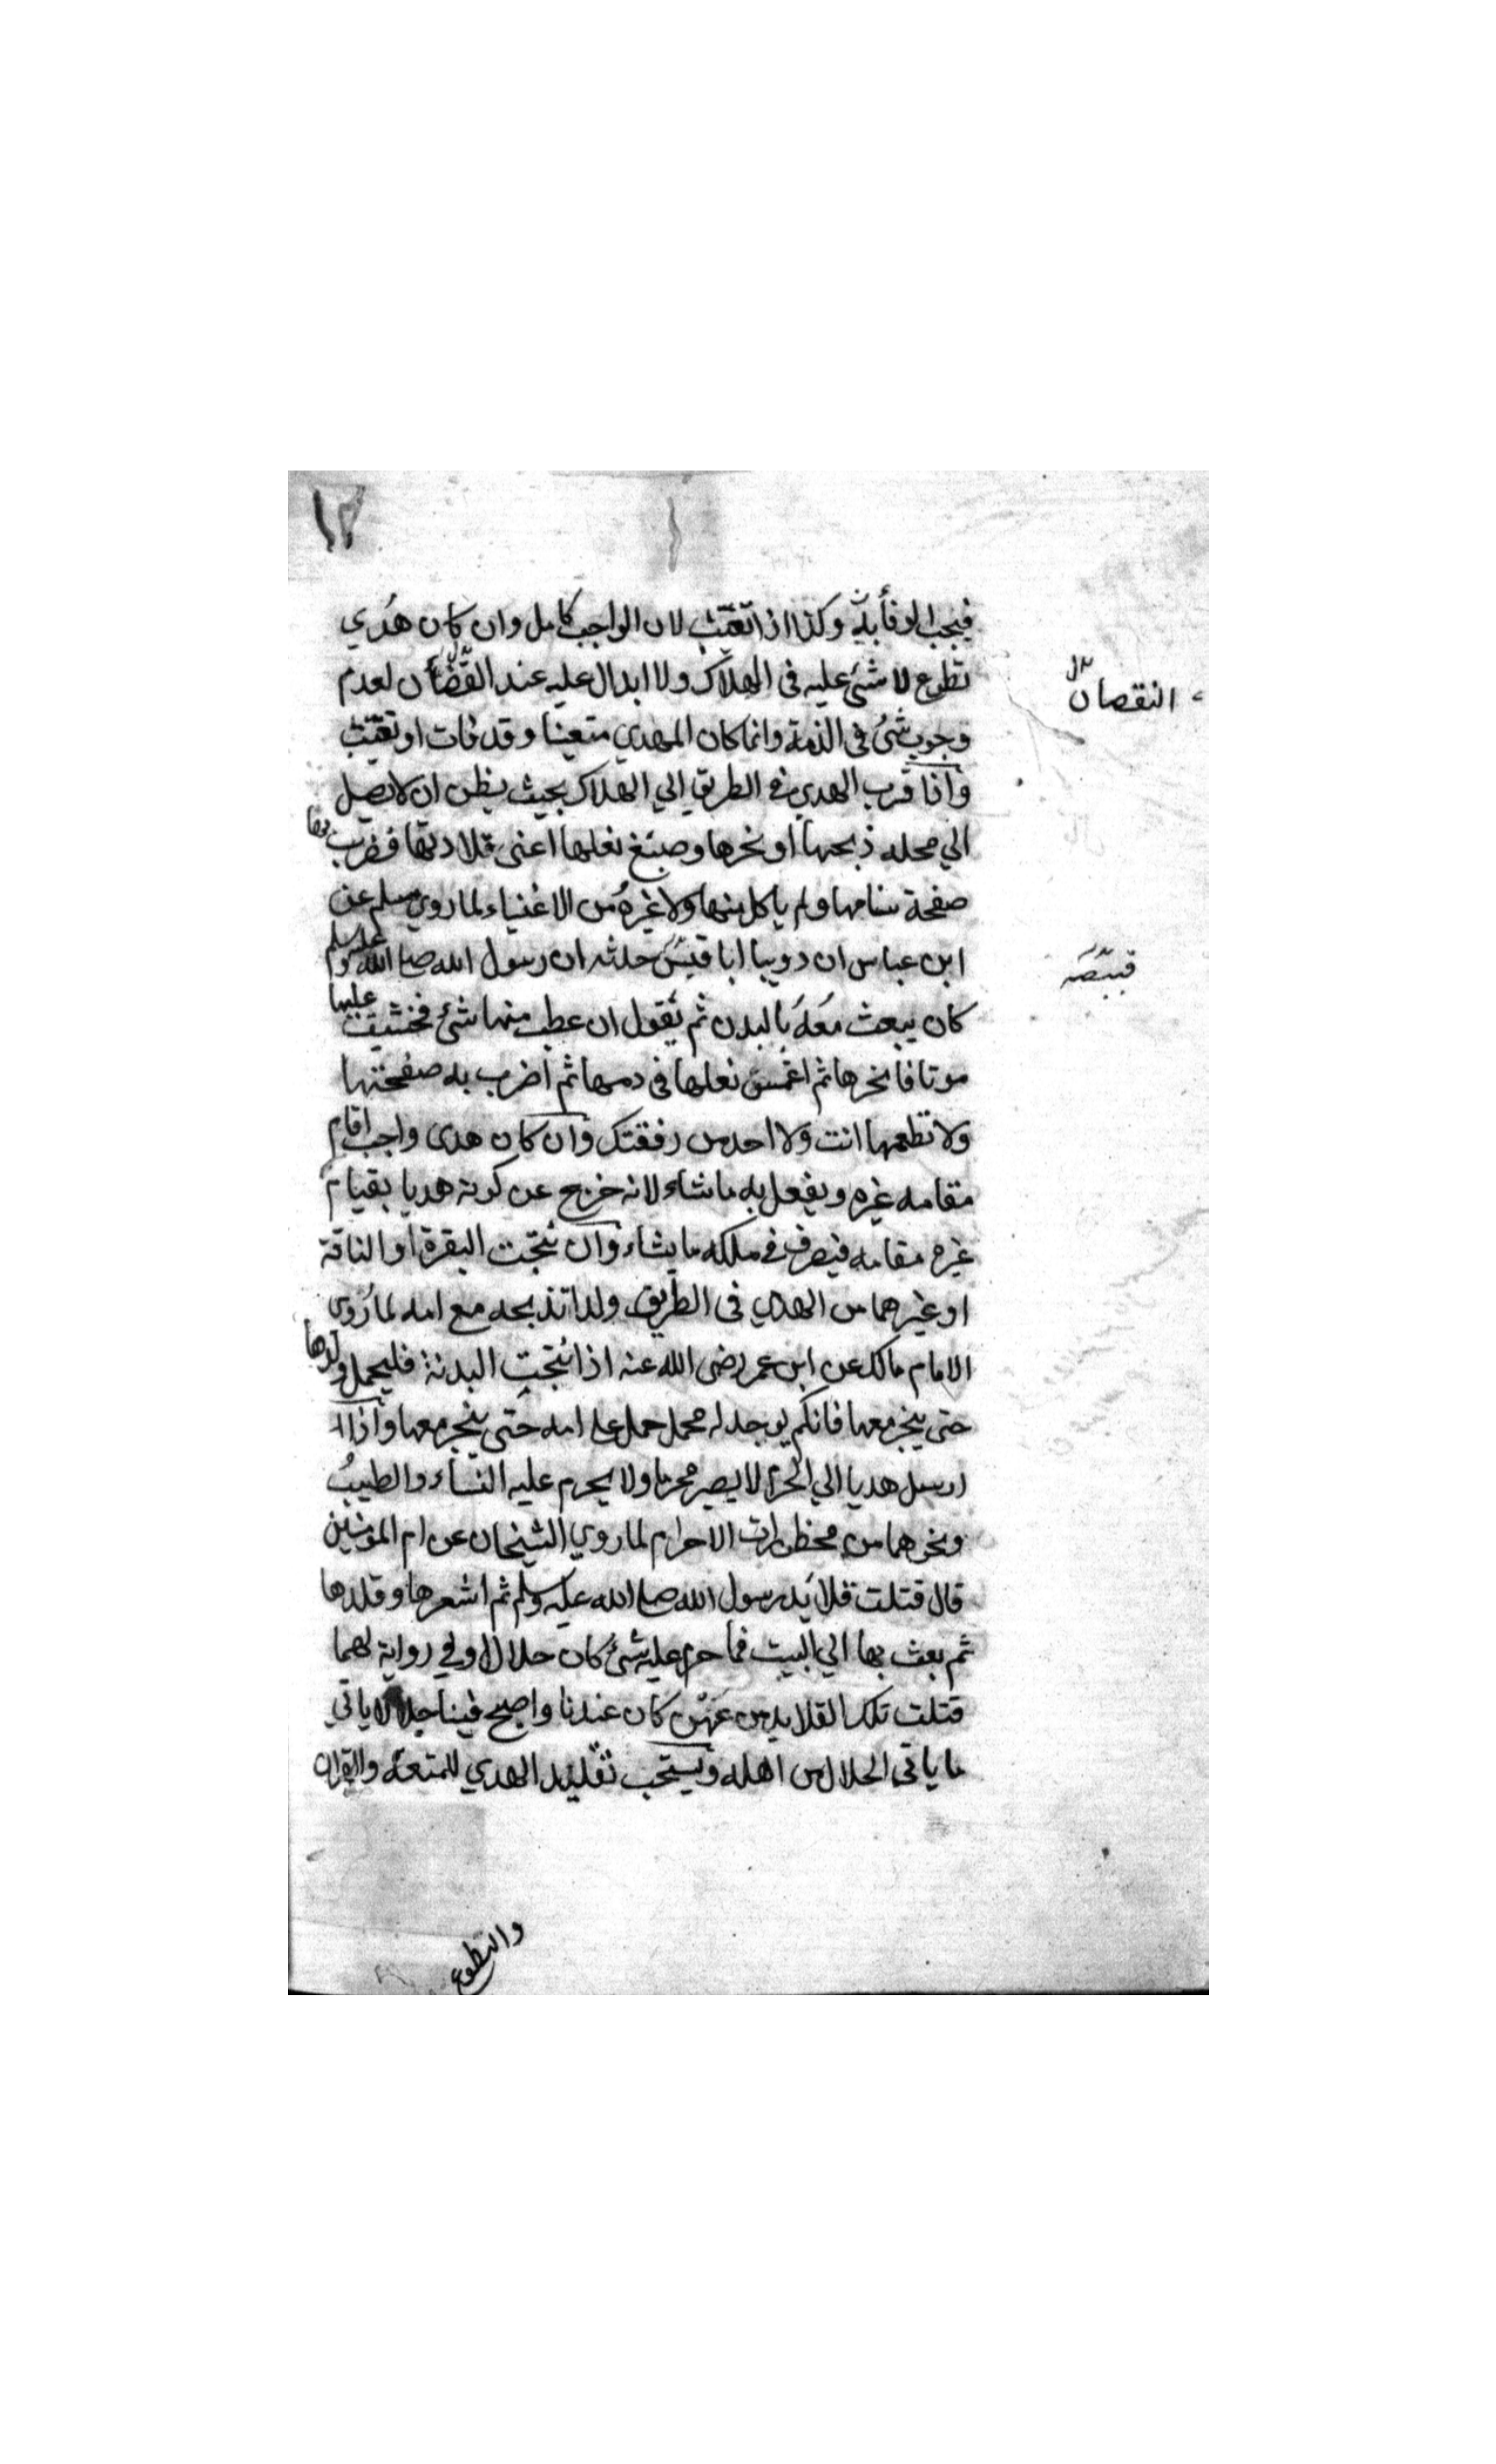 ١٢
فيجب الوفأ به وكذا اذا تعيّبت لان الواجب كامل وان كان هَدي
تطوع لا شئ عليه فى الهلاك ولا ابدال عليه عند القضأن لعدم
النقصان بدل
وجوب شئ فى الذمة وانما كان الهدي متعينا وقد فات او تعيّبت
واذا قرب الهدي في الطريق الي الهلاك بحيث يظن ان لا يصل
الي محله ذبحها او نحرها وصبغ نعلها اعنى قلادتها فضرب بها
صفحة سنامها ولم ياكل منها ولا غيره من الاغنياء لما روي مسلم عن
ابن عباس ان دويبا ابا قيس حدثه ان رسول الله صلى الله عليه وسلم
قبيصه
كان يبعث معه بالبدن ثم يقول ان عطب منها شئ فخشيت عليها
موتا فانحرها ثم اغمس نعلها فى دمها ثم اضرب به صفحتها
ولا تطعمها انت ولا احد من رفقتك وان كان هدى واجب اقام
مقامه غيره ويفعل به ما شاء لانه خرج عن كونه هديا بقيام
غيره مقامه فيصرف في ملكه ما يشاء وان نتجت البقرة او الناقة
او غيرهما من الهدي فى الطريق ولدا تذبحه مع امه لما روى
الامام مالك عن ابن عمر رضى الله عنه اذا نتجت البدنة فليحمل ولدها
حتى ينحر معها فان لم يوجد له محمل حمل على امه حتى ينحر معها واذا
ارسل هديا الي الحرم لا يصير محرما ولا يحرم عليه النساء والطيب
ونحوهما من محظورات الاحرام لما روي الشيخان عن ام المؤمنين
قال فتلت قلائد رسول الله صلى الله عليه وسلم ثم اشعرها وقلدها
ثم بعث بها الي البيت فما حرم عليه شئ كان حلالا وفي رواية لهما
فتلت تلك القلايد من عهن كان عندنا واصبح فينا حلالا ياتي
ما ياتى الحلال من اهله ويستحب تقليد الهدي للمتعة والقران
والتطوع